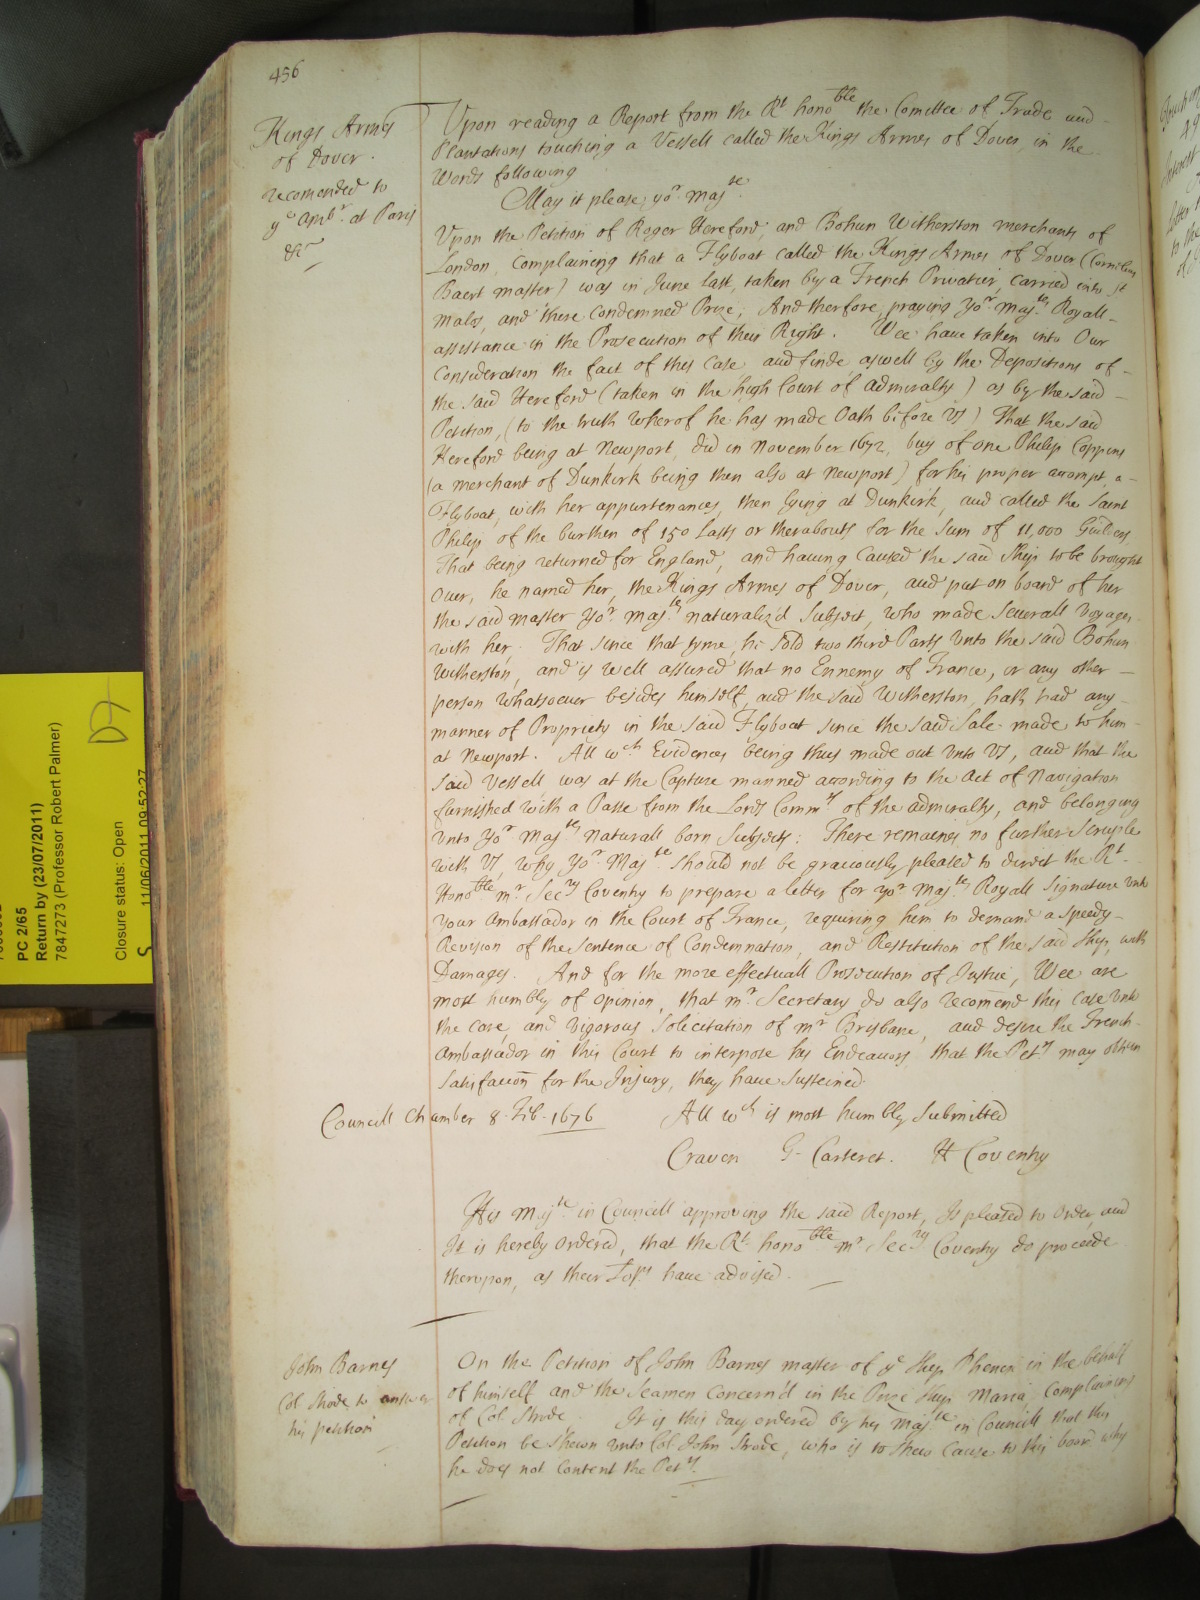 456
Kings Armes
of Dover.
recomended to
ye Ambr. at Paris
&c
Upon reading a Report from the Rt honoble the Comittee of Trade and
Plantations touching a Vessell called the Kings Armes of Dover, in the
Words following
May it please yor. Majte.
Upon the Petition of Roger Hereford, and Bohun Witherston merchants of
London, Complaineing that a Flyboat called the Kings Armes of Dover (Cornelius
Baert master) was in June last, taken by a French Privatier, carried into St
Malos, and there Condemned Prize; And therfore, praying Yor. Majtes. Royall
assistance in the Prosecution of their Right. Wee have taken into Our
Consideration the fact of this Case and finde, aswell by the Depositions of
the said Hereford (taken in the high Court of Admiralty) as by the said
Petition, (to the truth wherof he has made Oath before Us) That the said
Hereford being at Newport, did in November 1672, buy of one Philip Coppens
(a merchant of Dunkirk being then also at Newport) for his proper accompt, a
Flyboat, with her appurtenances, then lying at Dunkirk, and called the Saint
Philip of the burthen of 150 Lasts or therabouts for the Sum of 11,000 Guilders,
That being returned for England, and having Caused the said Ship to be brought
Over, he named her, the Kings Armes of Dover, and put on board of her
the said master Yor. Majtes. naturaliz'd Subject, who made Severall Voyages
with her. That since that tyme, he sold two third Parts unto the said Bohun
Witherston, and is well assured that no Ennemy of France, or any other
person whatsoever besides himself, and the said Witherston, hath had any
manner of Propriety in the said Flyboat since the said Sale made to him
at Newport. All wch Evidences being thus made out unto Us, and that the
said Vessell was at the Capture manned according to the Act of Navigation
furnished with a Passe from the Lords Commrs of the Admiralty, and belonging
unto Yor Majtes. naturall born Subjects: There remaines no further Scruple
with Us, why Yor. Majtie should not be graciously pleased to direct the Rt.
Honoble mr. Secry Coventry to prepare a letter for yor Majtes. Royall Signature unto
your Ambassador in the Court of France, requiring him to demand a speedy
Revision of the Sentence of Condemnation, and Restitution of the said Ship, with
Damages. And for the more effectuall Prosecution of Justice, Wee are
most humbly of opinion, that mr. Secretary do also recomend this Case unto
the care, and vigorous Solicitation of mr Brisbane, and desire the French
Ambassador in this Court to interpose his Endeavors, that the Petrs may obtain
Satisfaction for the Injury, they have Susteined.
Councill Chamber 8. Feb. 1676 All wch is most humbly Submitted
Craven G. Carteret. H Coventry
His Majte. in Councill approving the said Report, Is pleased to Order, and
It is hereby Ordered, that the Rt. honoble mr Secry Coventry do proceede
therupon, as their Lopps have advised.
John Barnes
Col Strode to answer
his petition
On the Petition of John Barnes master of ye Ship Phenix in the behalf
of himself and the Seamen Concern'd in the Prize Ship Maria, Complaining
of Col. Strode. It is this day ordered by his Majtie in Councill that this
Petition be shewn unto Col. John Strode, who is to shew cause to this board why
he does not content the Petrs.
PC 2/65
Return by (23/07/2011)
7847273 (Professor Robert Palmer)
Closure status: Open
S 11/06/2011 09:52:27
D7